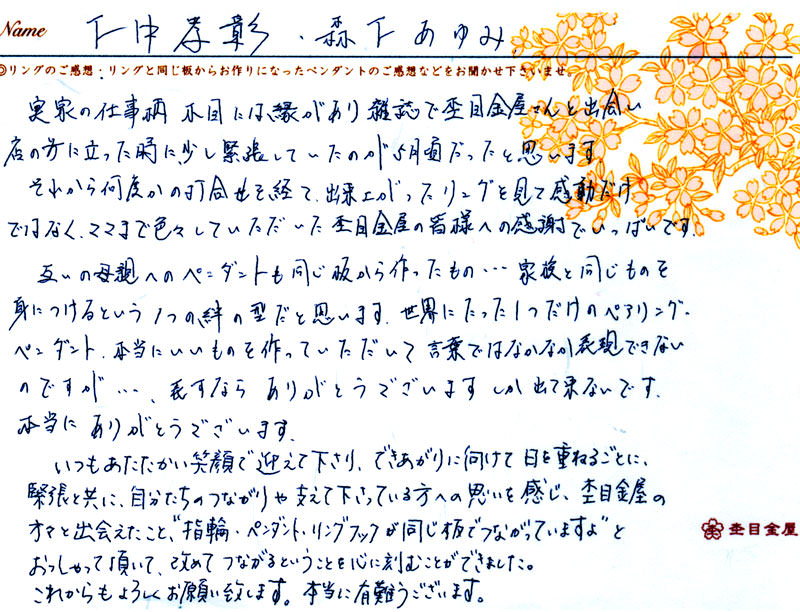 Name 下中孝彰・森下あゆみ
◎リングのご感想・リングと同じ板からお作りになったペンダントのご感想などをお聞かせ下さいませ。
実家の仕事柄 木目には縁があり 雑誌で杢目金屋さんと出会い
店の方に立った時に少し緊張していたのが5月頃だったと思います。
それから何度かの打合せを経て、出来上がったリングを見て感動だけ
ではなく、ここまで色々していただいた杢目金屋の皆様への感謝でいっぱいです。
互いの母親へのペンダントも同じ板から作ったもの… 家族と同じものを
身につけるという 1つの絆の型だと思います。世界にたった1つだけのペアリング・
ペンダント、本当にいいものを作っていただいて 言葉ではなかなか表現できない
のですが…、表すなら ありがとうございます しか出て来ないです。
本当に ありがとうございます。
いつもあたたかい笑顔で迎えて下さり、できあがりに向けて日を重ねるごとに、
緊張と共に、自分たちのつながりや支えて下さっている方への思いを感じ、杢目金屋の
方々と出会えたこと、“指輪・ペンダント・リングフックが同じ板でつながっていますよ”と
おっしゃって頂いて、改めてつながるということを心に刻むことができました。
これからもよろしくお願い致します。本当に有難うございます。
杢目金屋